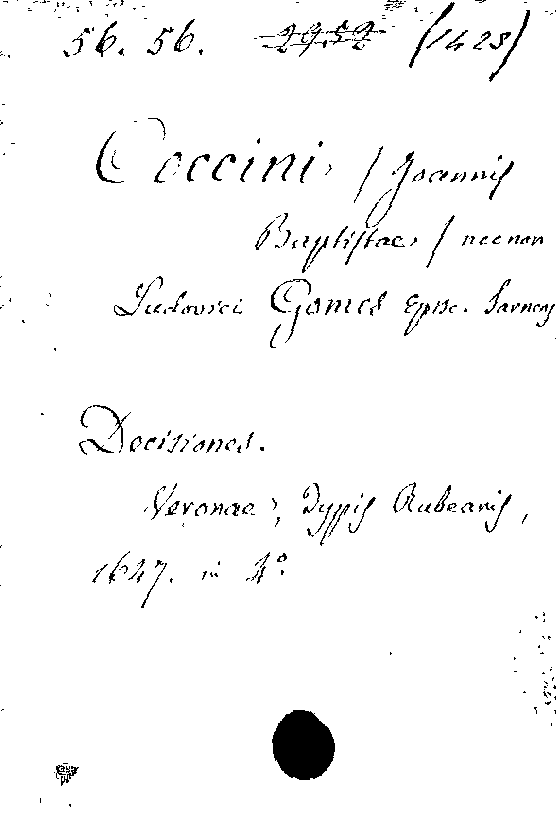 56. 56. 2952 (1428)
Coccini, / Joannis
Baptistae, / necnon
Ludovici Gomes Episc. Sarnens
Decisiones.
Veronae, Typis Rubeanis,
1647. in 4º